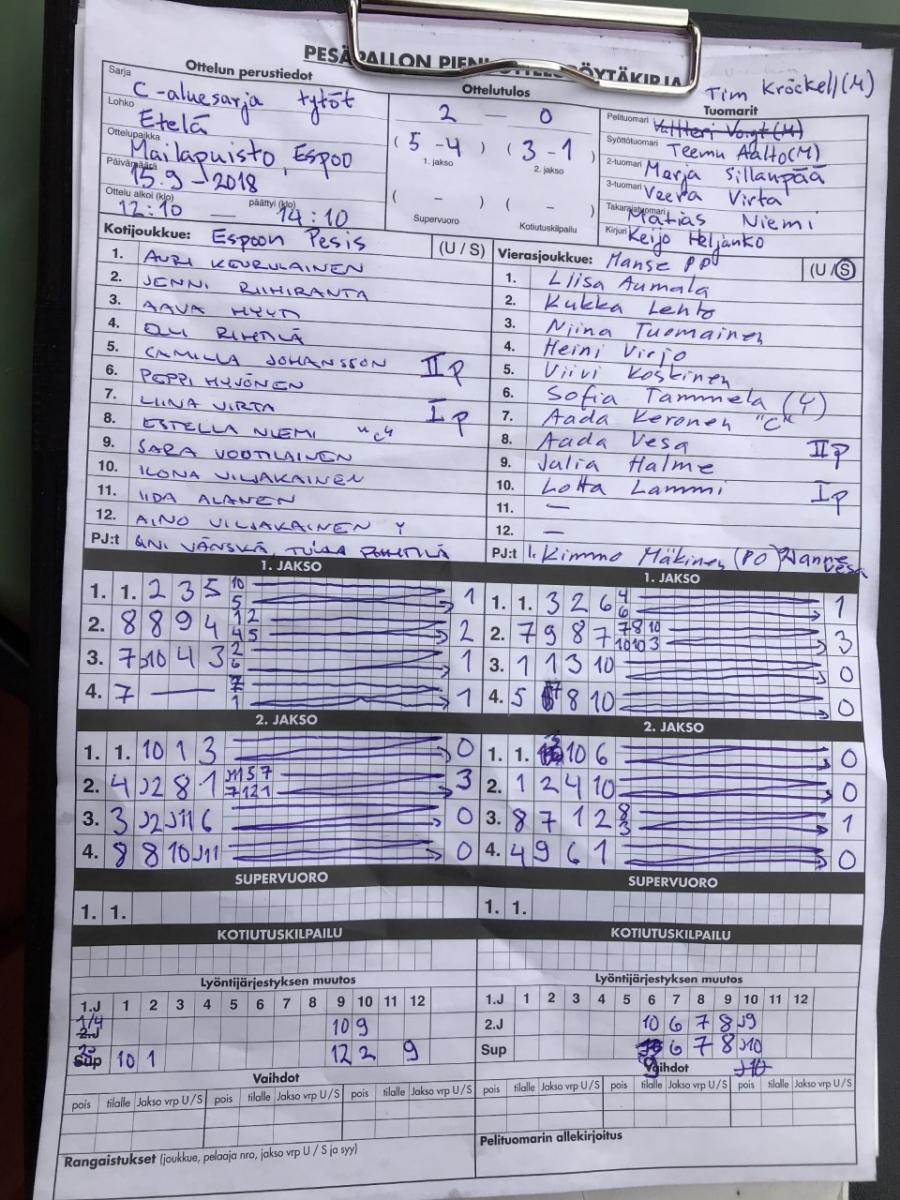 PESÄPALLON PIENI OTTELUPÖYTÄKIRJA
Ottelun perustiedot
Sarja
C-aluesarja tytöt
Lohko
Etelä
Ottelupaikka
Mailapuisto, Espoo
Päivämäärä
15.9-2018
Ottelu alkoi (klo) päättyi (klo)
12:10 — 14:10
Ottelutulos
2 — 0
( 5 -4 ) ( 3 - 1 )
1. jakso 2. jakso
( - ) ( - )
Supervuoro Kotiutuskilpailu
Tim Kröckell (M)
Tuomarit
Pelituomari Valtteri Voigt (M)
Syöttötuomari Teemu Aalto (M)
2-tuomari Merja Sillanpää
3-tuomari Veera Virta
Takarajatuomari Matias Niemi
Kirjuri Keijo Heljanko
Kotijoukkue: Espoon Pesis (U / S)
1. AURI KEURULAINEN
2. JENNI RIIHIRANTA
3. AAVA HYYTI
4. RIHTILÄ
5. CAMILLA JOHANSSON II p
6. PEPPI HYVÖNEN
7. LIINA VIRTA I p
8. ESTELLA NIEMI "C"
9. SARA VOUTILAINEN
10. ILONA VILJAKAINEN
11. IIDA ALANEN
12. AINO VILJAKAINEN Y
PJ:t VÄNSKÄ,
Vierasjoukkue: Manse PP (U / S)
1. Liisa Aumala
2. Kukka Lehto
3. Niina Tuomainen
4. Heini Virjo
5. Viivi Koskinen
6. Sofia Tammela (Y)
7. Aada Keronen "C"
8. Aada Vesa II p
9. Julia Halme
10. Lotta Lammi I p
11. —
12. —
PJ:t 1. Kimmo Mäkinen (PO) 2) Vesa
1. JAKSO
1. 1. 2 3 5 10 5 1
2. 8 8 9 4 1 2 4 5 2
3. 7 J10 4 3 2 6 1
4. 7 — 7 1 1
1. JAKSO
1. 1. 3 2 6 4 6 1
2. 7 9 8 7 7 8 10 10 10 3 3
3. 1 1 3 10 0
4. 5 8 10 0
2. JAKSO
1. 1. 10 1 3 0
2. 4 J2 8 1 J11 5 7 7 12 1 3
3. 3 J2 J11 6 0
4. 8 8 10 J11 0
2. JAKSO
1. 1. 10 6 0
2. 1 2 4 10 0
3. 8 7 1 2 8 3 1
4. 4 9 6 1 0
SUPERVUORO
1. 1.
SUPERVUORO
1. 1.
KOTIUTUSKILPAILU
KOTIUTUSKILPAILU
Lyöntijärjestyksen muutos
1.J 1 2 3 4 5 6 7 8 9 10 11 12
1/4 2.J 10 9
Sup 10 1 12 2 9
Lyöntijärjestyksen muutos
1.J 1 2 3 4 5 6 7 8 9 10 11 12
2.J 10 6 7 8 J9
Sup 9 6 7 8 J10
Vaihdot
pois tilalle Jakso vrp U / S pois tilalle Jakso vrp U / S pois tilalle Jakso vrp U / S
Vaihdot J10
pois tilalle Jakso vrp U / S pois tilalle Jakso vrp U / S pois tilalle Jakso vrp U / S
Rangaistukset (joukkue, pelaaja nro, jakso vrp U / S ja syy)
Pelituomarin allekirjoitus